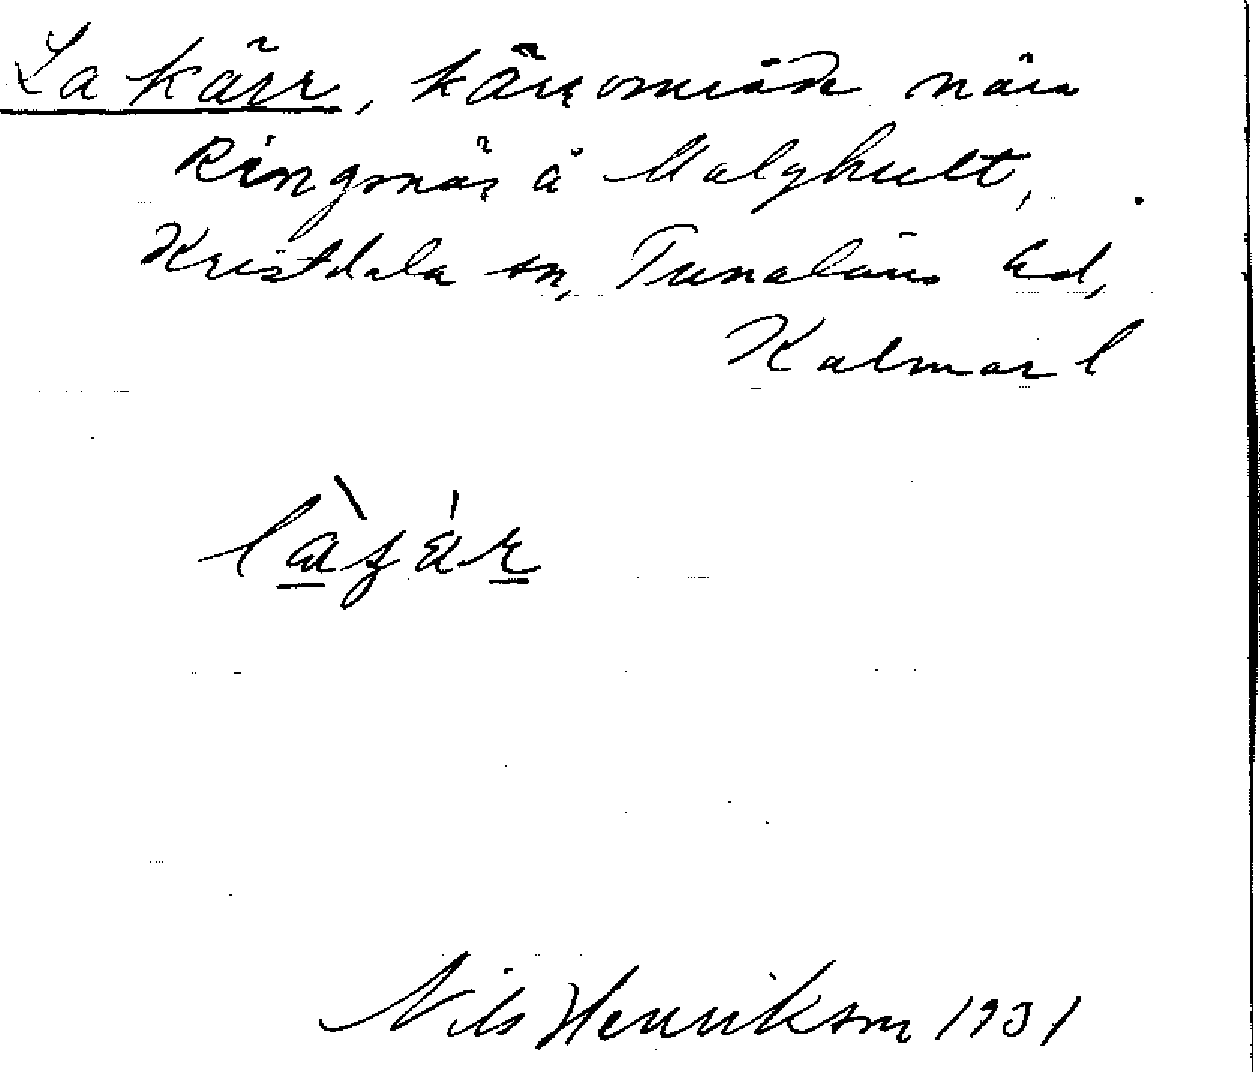 Lakärr, kärrområde nära
Ringnäs å Malghult,
Kristdala sn, Tunaläns hd,
Kalmar l
Nils Henrikson 1931